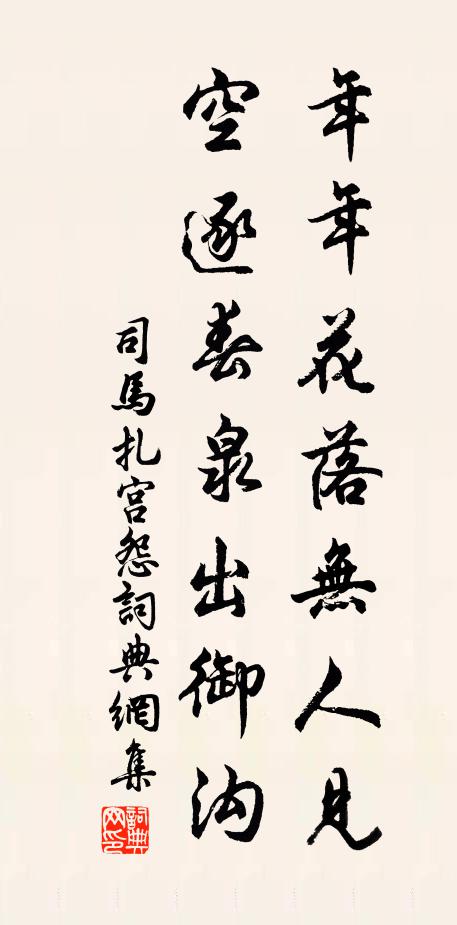 年年花落無人見
空逐春泉出御沟
司馬扎宫怨詞典網集
詞典网印